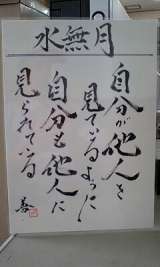 水無月
自分が他人を
見ているように
自分も他人に
見られている